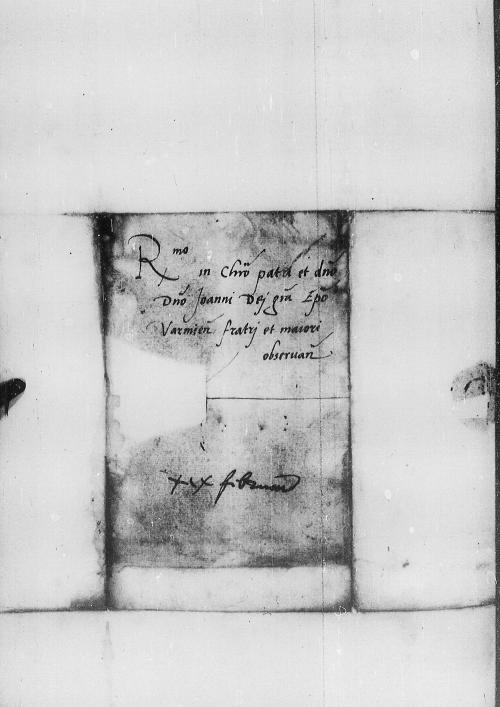 R^mo in Chro patri et dno
Dno Joanni Dej gra Epo
Varmien fratrj et maiori
observan
xxx februarii